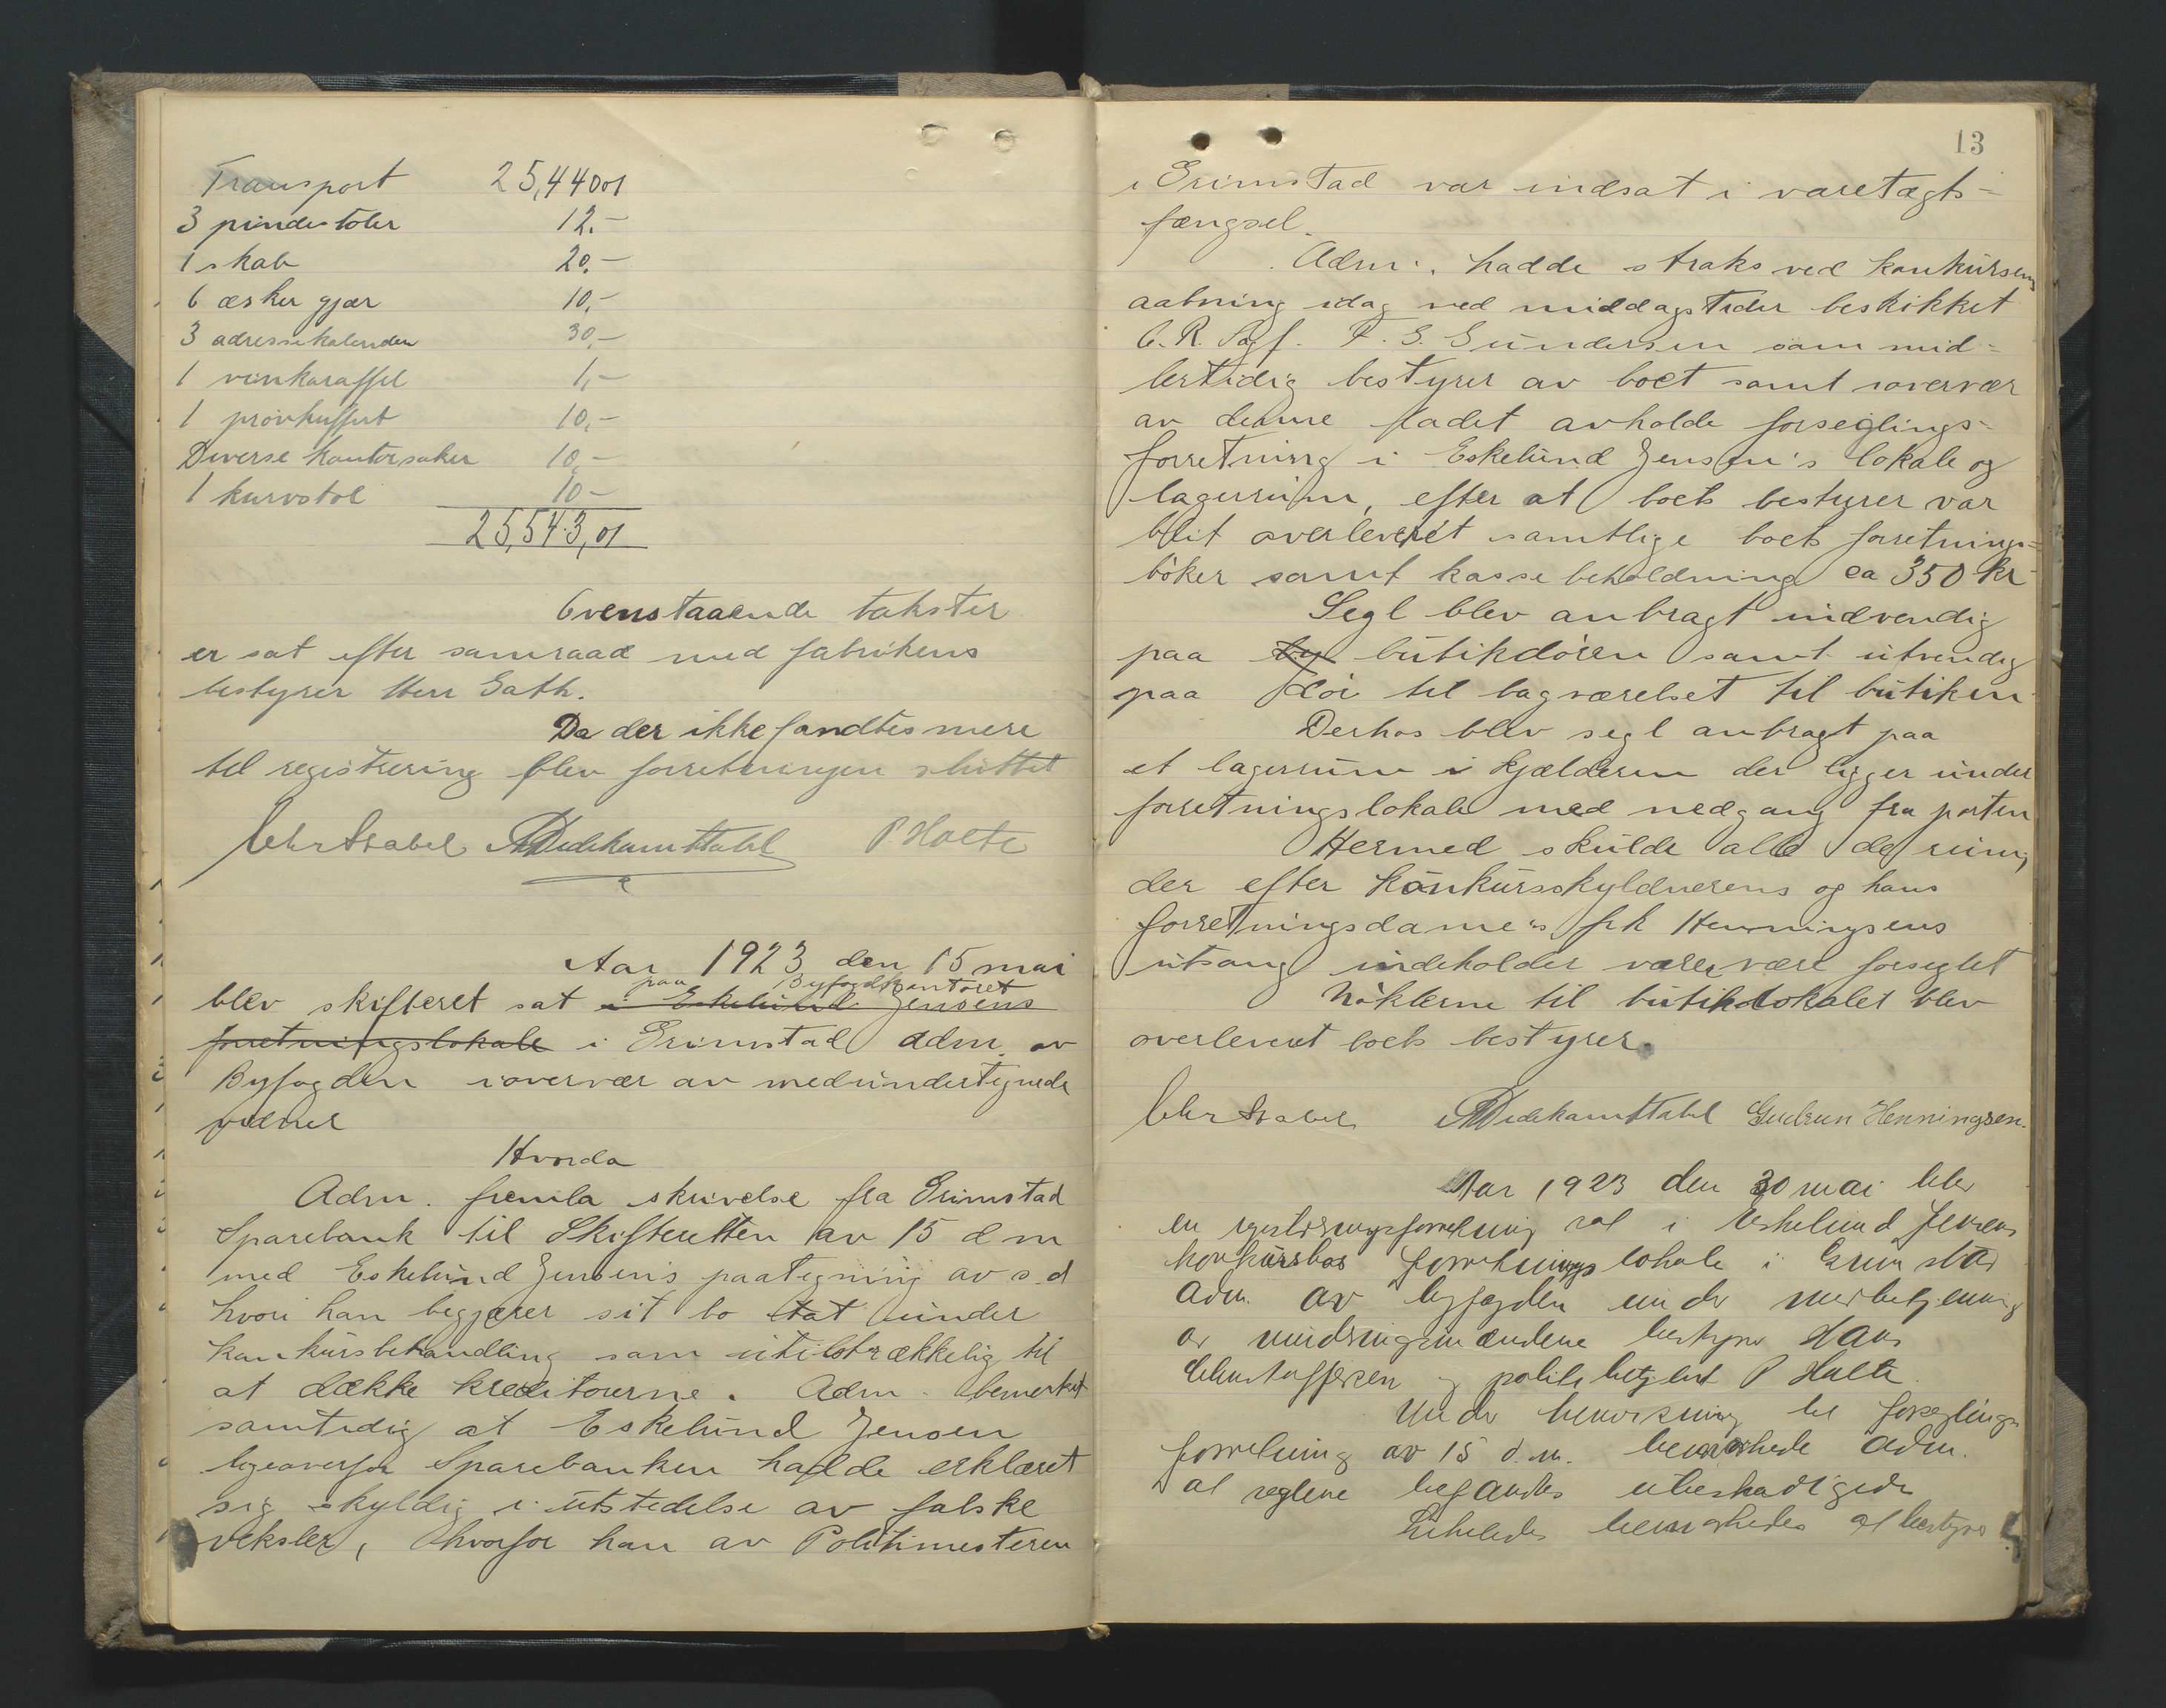 Transport 25,440 01
3 pindestoler 12.-
1 skab 20.-
6 æsker gjær 10,-
3 adressekalender 30,-
1 vinkaraffel 1,-
1 prøvkuffert 10,-
Diverse kontorsaker 10,-
1 kurvstol 10-
25,543,01
Ovenstaaende takster
er sat efter samraad med fabrikens
bestyrer Herr Gath.
Da der ikke fandtes mere
til registrering blev forretningen sluttet
P. Holte
Aar 1923 den 15 mai
paa Byfogdkontoret
blev skifteret sat i Eskelund Jensens
forretningslokale i Grimstad adm. av
Byfogden i overvær av medundertegnede
vidner
Hvorda
Adm. fremla skrivelse fra Grimstad
Sparebank til Skifteretten av 15 d m
med Eskelund Jensen's paategning av s.d
hvori han begjærer sit bo tat under
konkursbehandling som utilstrækkelig til
at dække kreditorerne. Adm. bemerket
samtidig at Eskelund Jensen
likeoverfor Sparebanken hadde erklæret
sig skyldig i utstedelse av falske
veksler, hvorfor han av Politimesteren
13
i Grimstad var indsat i varetægts-
fængsel.
Adm. hadde straks ved konkursens
aabning idag ved middagstider beskikket
O.R. Sagf. F. G. Gundersen som mid-
lertidig bestyrer av boet samt i overvær
av denne ladet avholde forseglings-
forretning i Eskelund Jensen's lokale og
lagerrum, efter at boets bestyrer var
blit overleveret samtlige boets forretnings-
bøker samt kassebeholdning ca 350 kr
Segl blev anbragt indvendig
paa butikdøren samt utvendig
paa dør til bagværelset til butiken
Derhos blev segl anbragt paa
et lagerrum i kjælderen der ligger under
forretningslokale med nedgang fra porten
Hermed skulde alle de rum,
der efter konkursskyldnerens og hans
forretningsdame's frk Henningsens
utsang indeholder varer være forseglet
Nøklerne til butiklokalet blev
overleveret boets bestyrer.
Gudrun Henningsen.
Aar 1923 den 30 mai blev
en registreringsforretning sat i Eskelund Jensens
konkursbos forretningslokale i Grimstad
Adm. av byfogden under medbetjening
av vurdringsmændene bestyrer Hans
Christoffersen og politibetjent P Holte
Under henvisning til forseglings-
forretning av 15 d.m. bemerkede adm.
at seglene befandtes ubeskadigede
Likeledes bemerkedes at bestyrer